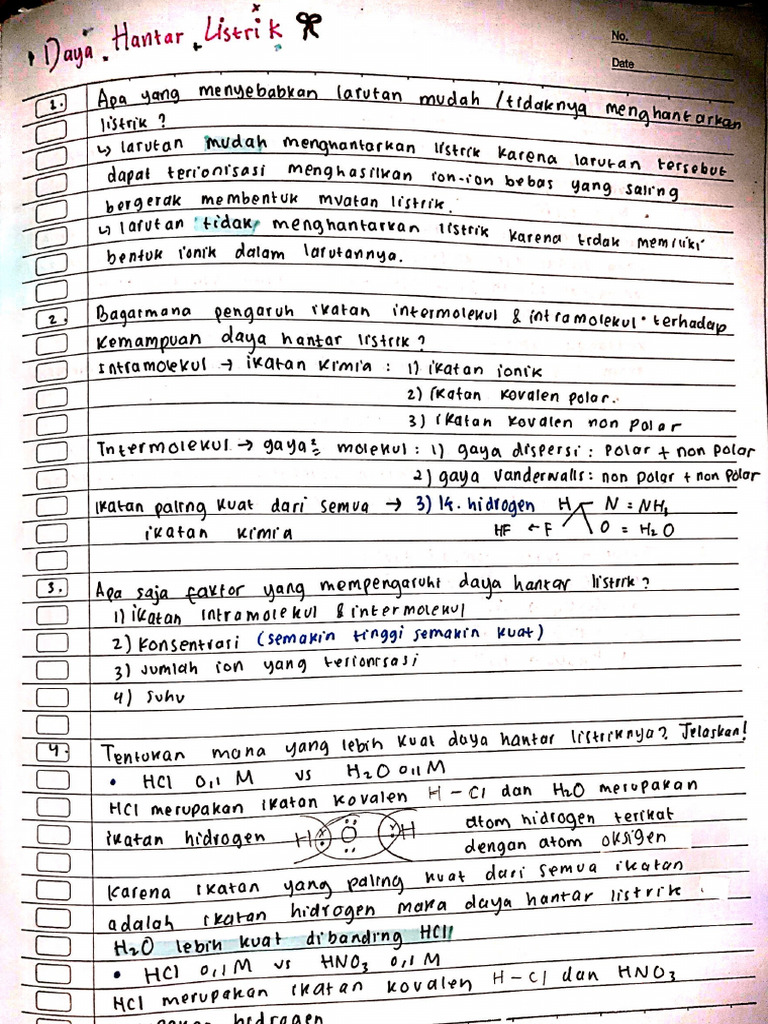 Daya Hantar Listrik
No.
Date
1. Apa yang menyebabkan larutan mudah / tidaknya menghantarkan
listrik ?
↳ larutan mudah menghantarkan listrik karena larutan tersebut
dapat terionisasi menghasilkan ion-ion bebas yang saling
bergerak membentuk muatan listrik.
↳ larutan tidak menghantarkan listrik karena tidak memiliki
bentuk ionik dalam larutannya.
2. Bagaimana pengaruh ikatan intermolekul & intramolekul terhadap
kemampuan daya hantar listrik ?
Intramolekul → ikatan kimia : 1) ikatan ionik
2) ikatan kovalen polar.
3) ikatan kovalen non polar
Intermolekul → gaya² molekul : 1) gaya dispersi : polar + non polar
2) gaya vanderwalls : non polar + non polar
Ikatan paling kuat dari semua → 3) Ik. hidrogen H N = NH₃
ikatan kimia HF ← F O = H₂O
3. Apa saja faktor yang mempengaruhi daya hantar listrik ?
1) ikatan intramolekul & intermolekul
2) Konsentrasi (semakin tinggi semakin kuat)
3) Jumlah ion yang terionisasi
4) Suhu
4. Tentukan mana yang lebih kuat daya hantar listriknya? Jelaskan!
• HCl 0,1 M vs H₂O 0,1 M
HCl merupakan ikatan kovalen H - Cl dan H₂O merupakan
ikatan hidrogen H O H atom hidrogen terikat
dengan atom oksigen
Karena ikatan yang paling kuat dari semua ikatan
adalah ikatan hidrogen maka daya hantar listrik
H₂O lebih kuat dibanding HCl
• HCl 0,1 M vs HNO₃ 0,1 M
HCl merupakan ikatan kovalen H - Cl dan HNO₃
hidrogen